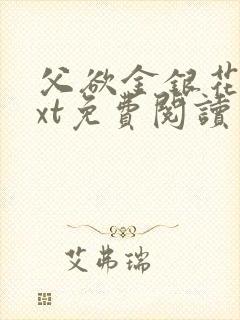 父欲金銀花
xt免費閱讀
艾弗瑞